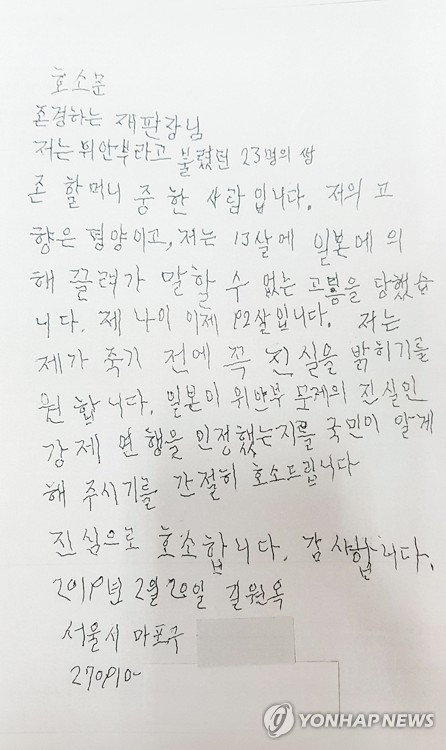 호소문
존경하는 재판장님
저는 위안부라고 불렸던 23명의 쌩
존 할머니 중 한 사람 입니다. 저의 고
향은 평양이고, 저는 13살에 일본에 의
해 끌려가 말할 수 없는 고통을 당했습
니다. 제 나이 이제 92살입니다. 저는
제가 죽기 전에 꼭 진실을 밝히기를
원합니다. 일본이 위안부 문제의 진실인
강제 연행을 인정했는지를 국민이 알게
해 주시기를 간절히 호소드립니다
진심으로 호소합니다. 감사합니다.
2019년 2월 20일 길원옥
서울시 마포구
270910-
YONHAP NEWS